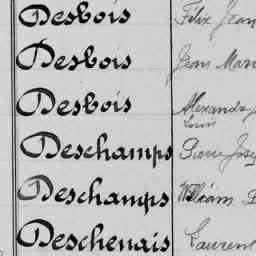 Desbois Félix Jean
Desbois Jean Mari
Desbois Alexandre
Louis
Deschamps Pierre Jose
Deschamps William
Deschenais Laurent